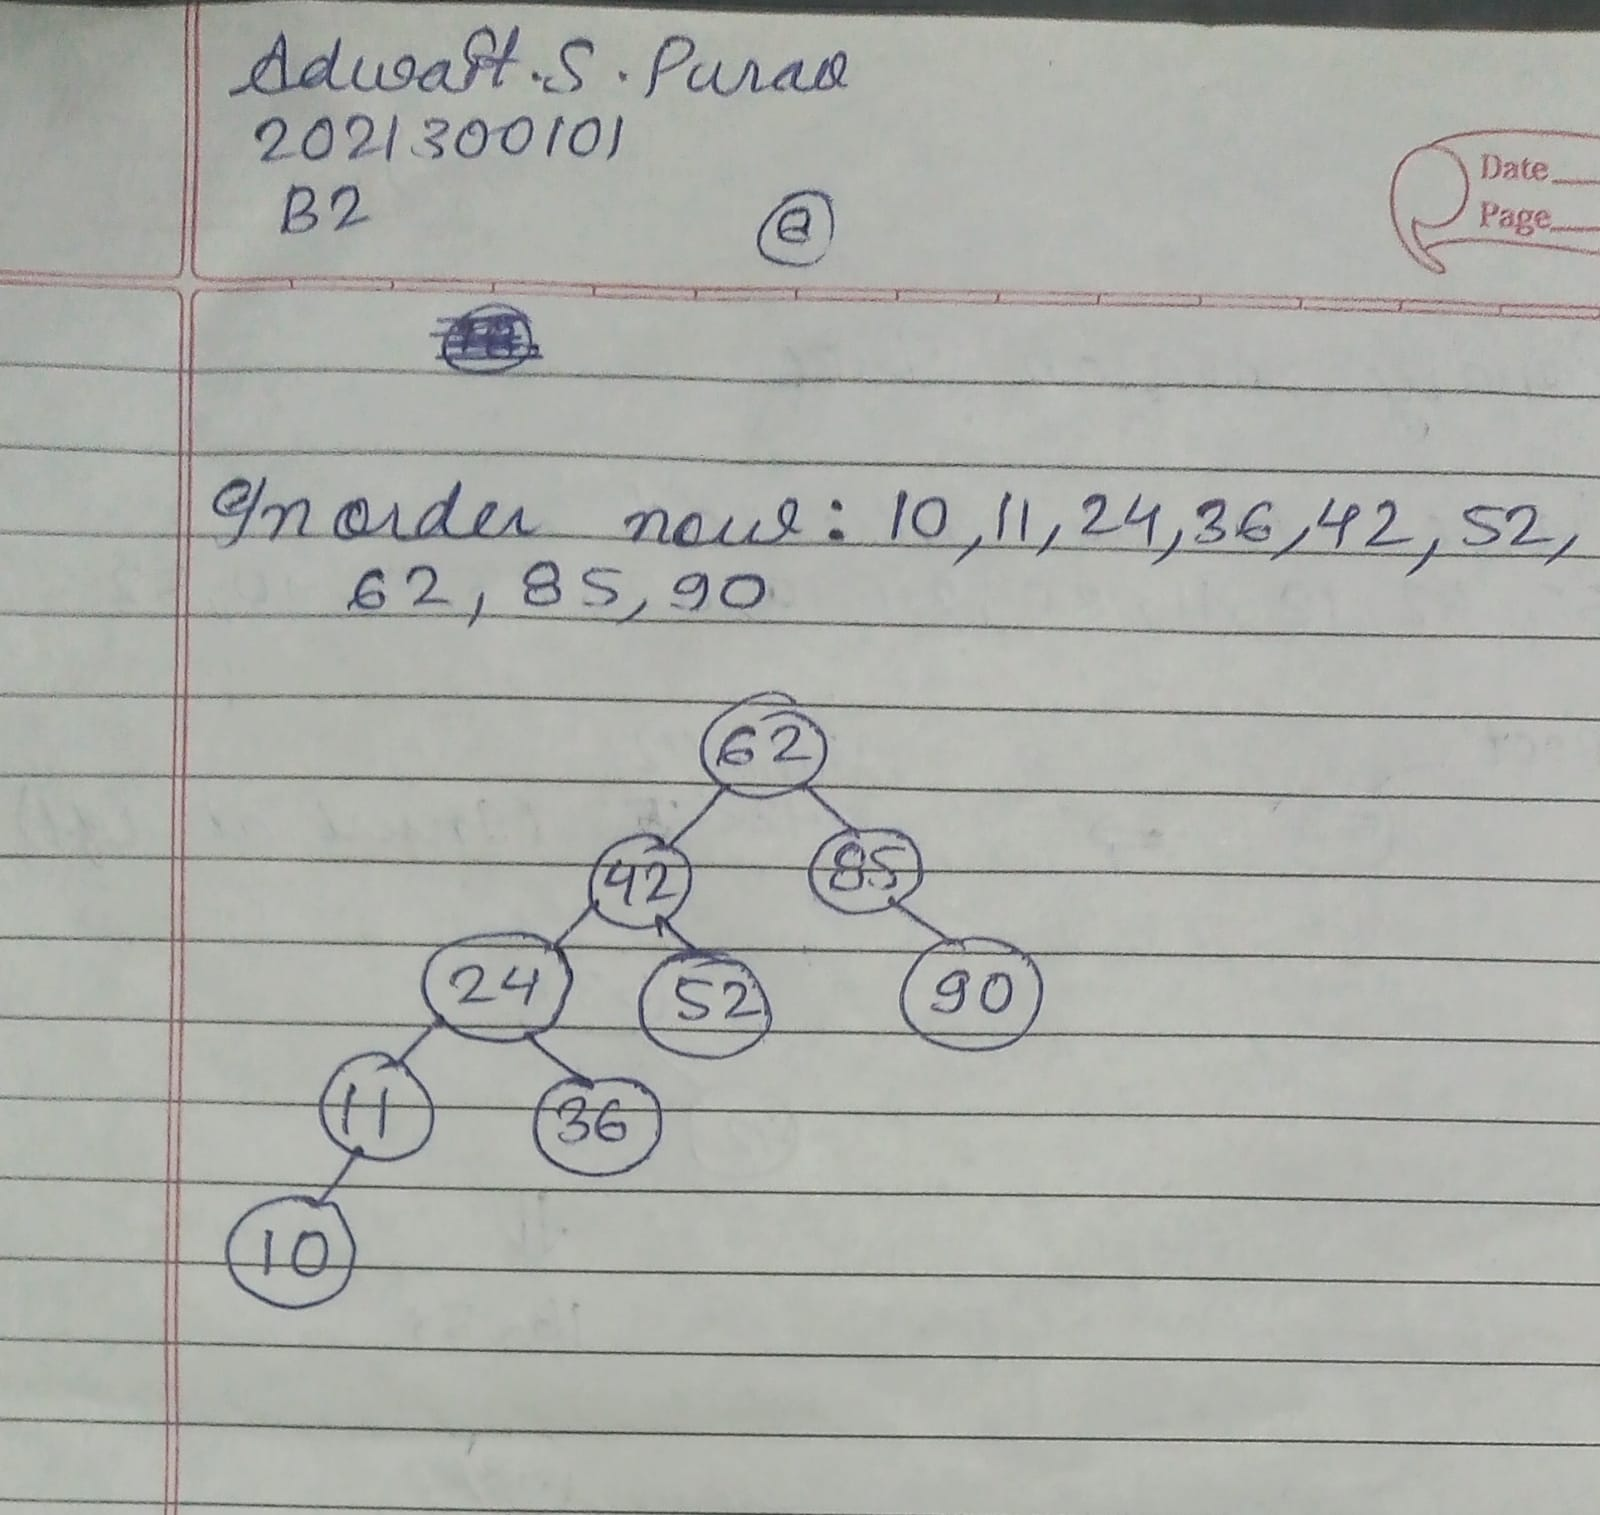 Adwait.S.Purao
2021300101
B2
Date
Page
Inorder now: 10,11,24,36,42,52,
62, 85, 90
62
42 85
24 52 90
11 36
10